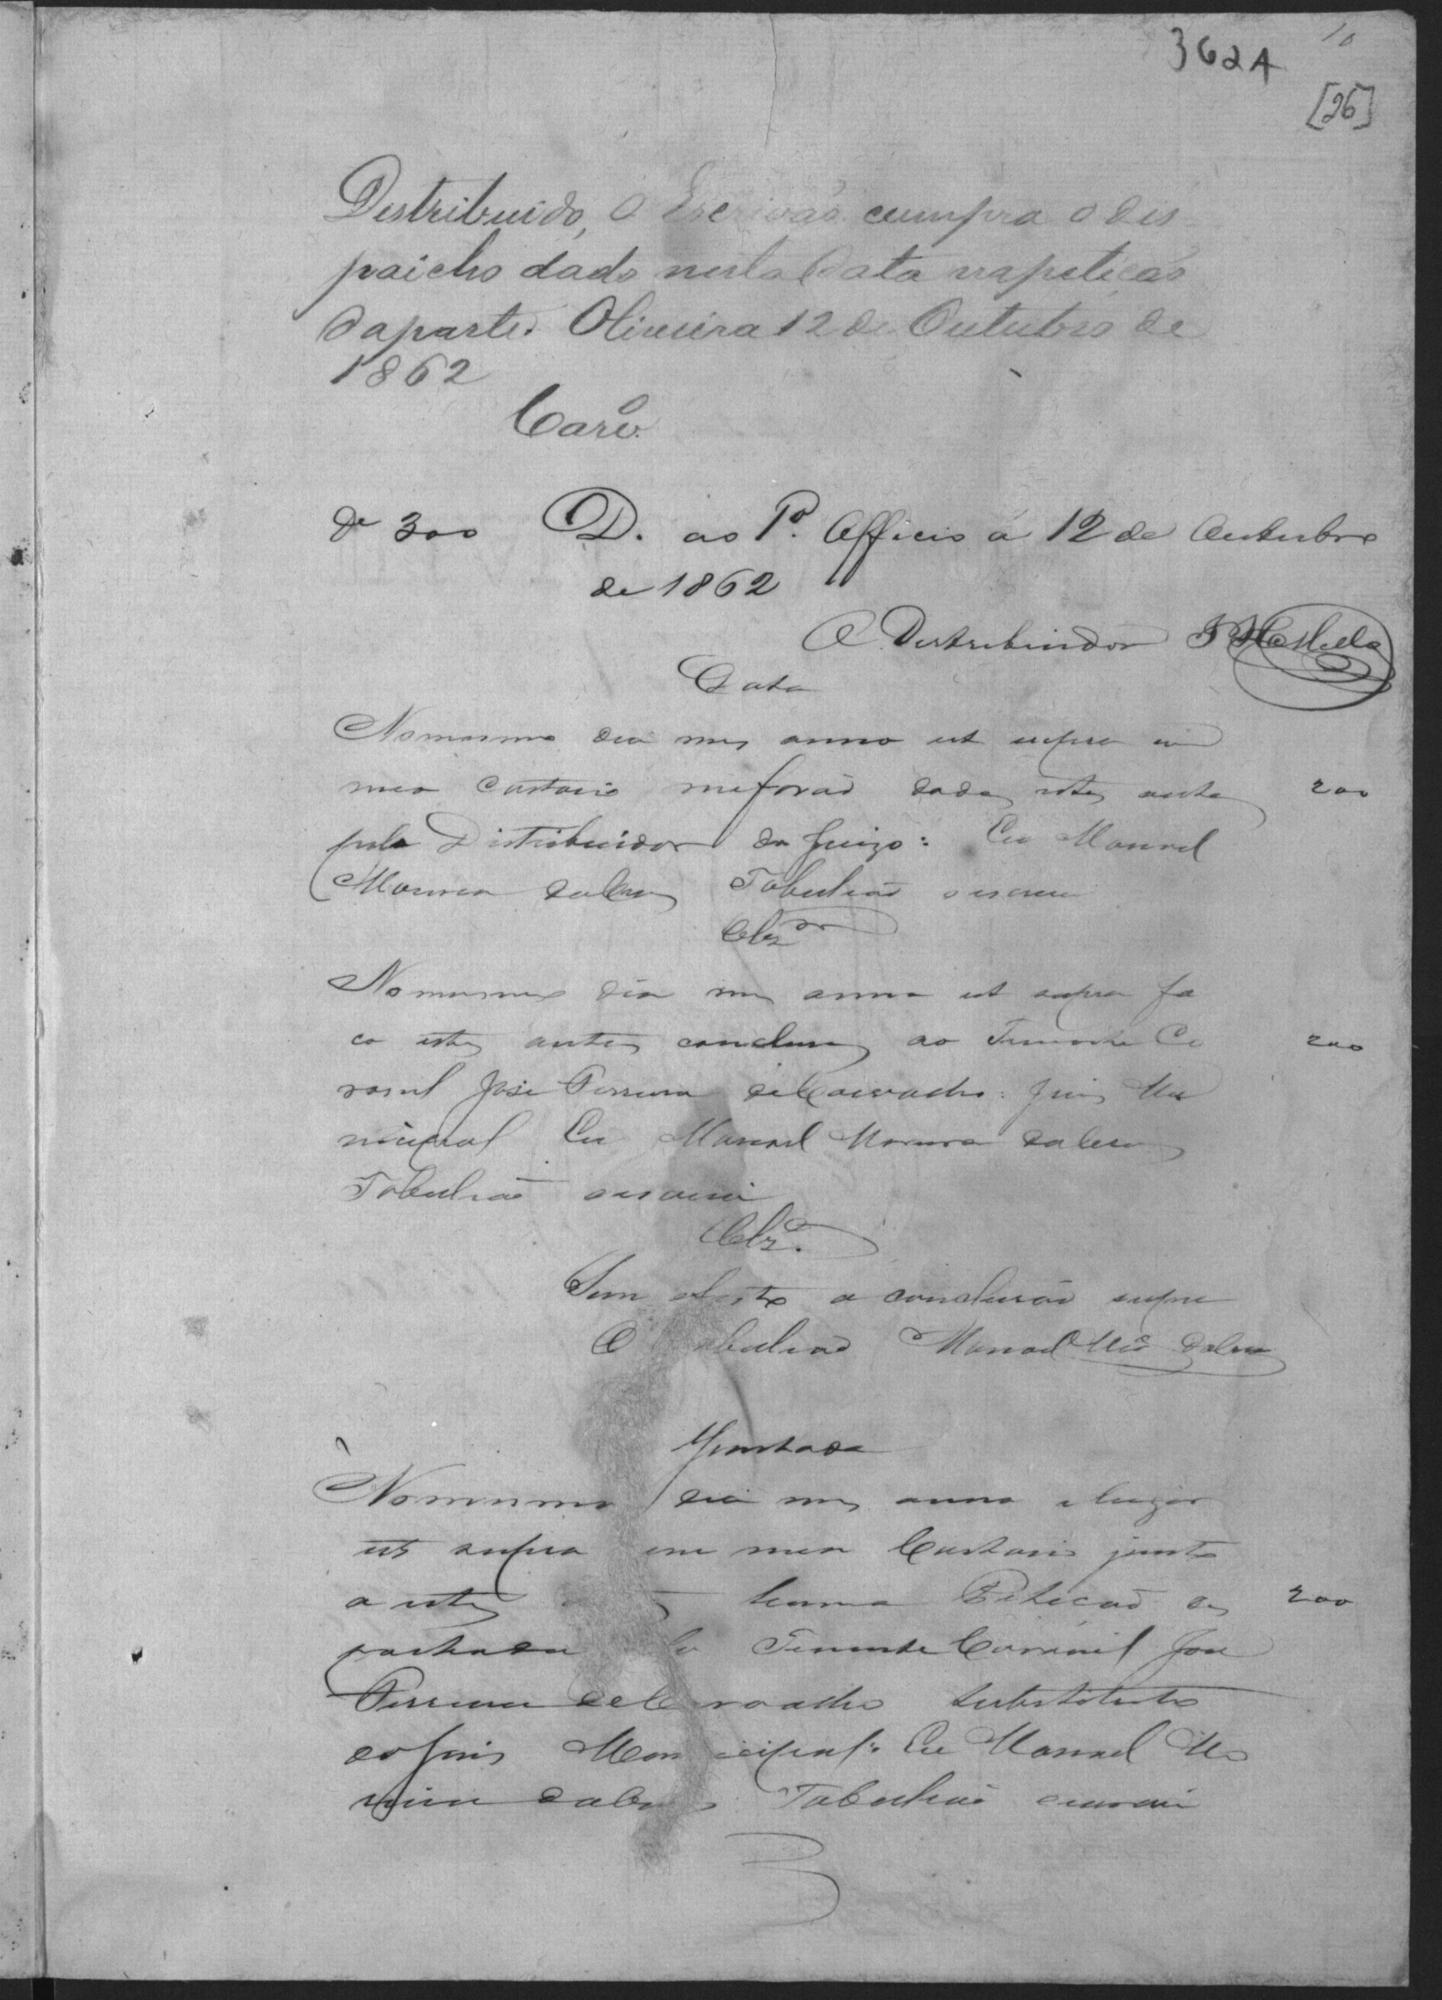 10
362A
[26]
Distribuido, O Escrivão cumpra o dis
paicho dado nesta Data napetição
daparte. Oliveira 12 de Outubro de
1862
Carvo.
De 300 D. ao 1º. Officio a 12 de Outubro
de 1862
O Distribuidor
Data
Nomesmo dia mes anno ut supra em
meo Cartorio meforaõ dados estes autos 200
pelo Distribuidor do Juizo: Eu Manoel
Moreira Tabeliaõ o escrevi
Clzão
Nomesmo dia mes anno ut supra fa
co estes autos concluzos ao Tenente Co 200
ronel José Ferreira deCarvalho. Juis Mu
nicipal Eu Manoel Moreira
Tabeliaõ oescrevi
Clz.
Sem efeito a concluzaõ supra
O Tabeliaõ Manoel Mrª
Juntada
Nomesmo dia mes anno elugar
ut supra em meo Cartorio junto
a estes huma Petiçaõ des 200
pachada Tenente Coronel José
Ferreira deCarvalho substituto
doJuis Municipal: Eu Manoel Mo
reira Tabeliaõ oescrevi